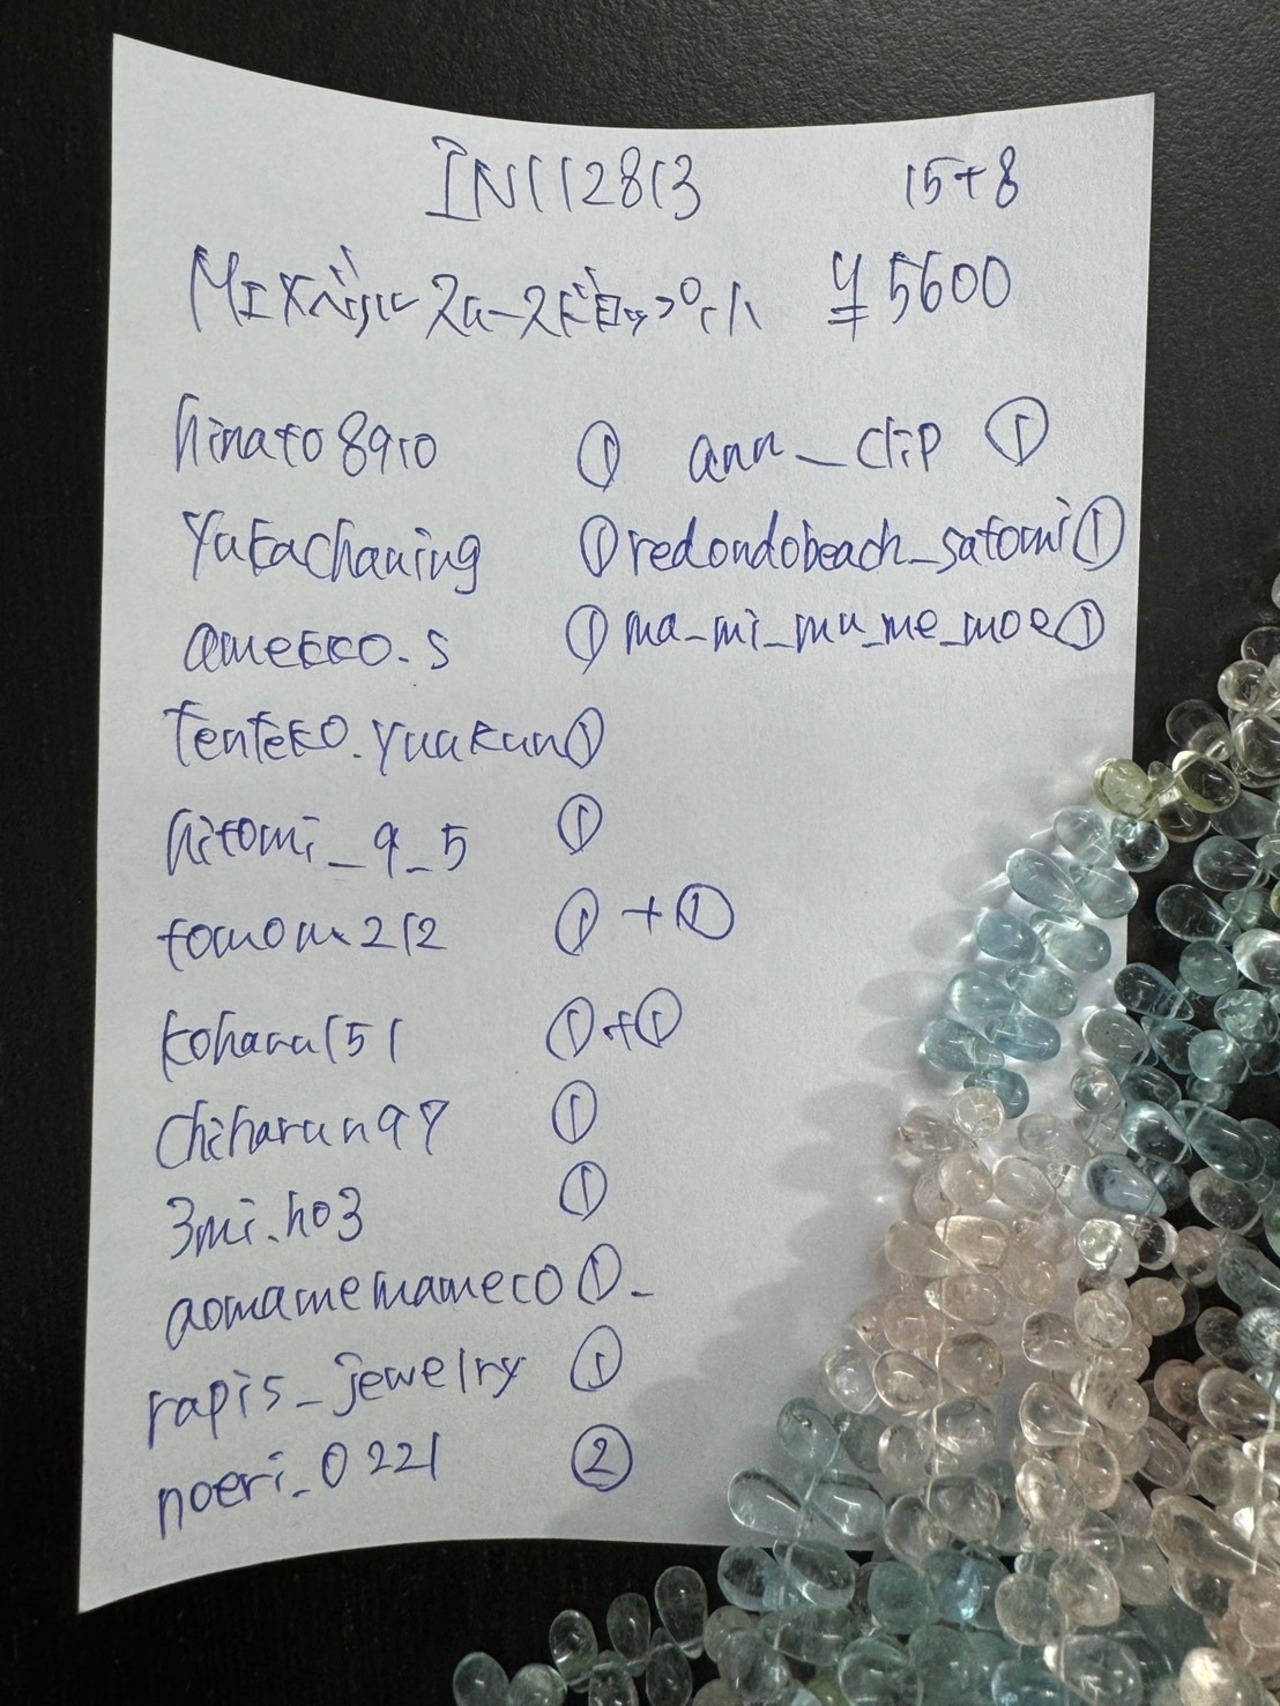 IN112813 15+8
MIXベリル スムースドロップ小 ¥5600
hinato8910 ① ann_clip ①
Yukachaning ① redondobeach_satomi ①
amekko.s ① ma_mi_mu_me_moe ①
tenteko.yuakun ①
hitomi_9_5 ①
tomom.212 ① + ①
koharu151 ① + ①
chiharun97 ①
3mi.ho3 ①
aomamemameco ① -
rapis_jewelry ①
noeri_0221 ②